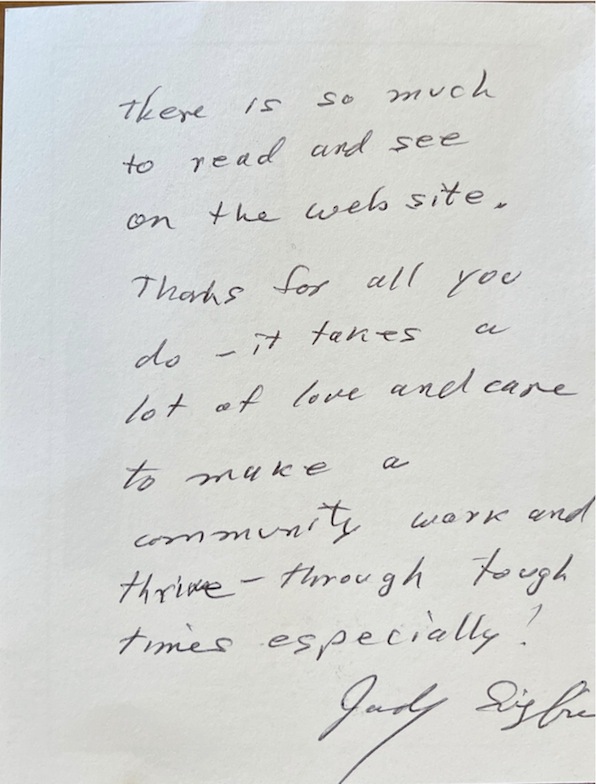 there is so much
to read and see
on the web site.
Thanks for all you
do - it takes a
lot of love and care
to make a
community work and
thrive - through tough
times especially!
Judy